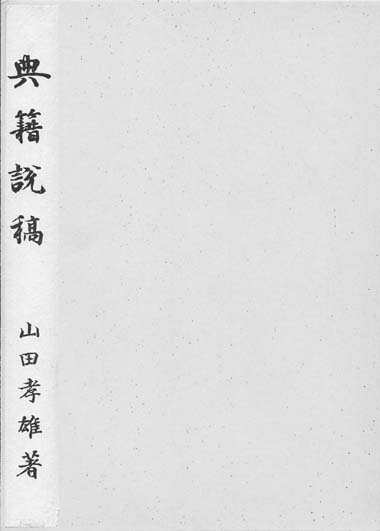 典籍説稿
山田孝雄著